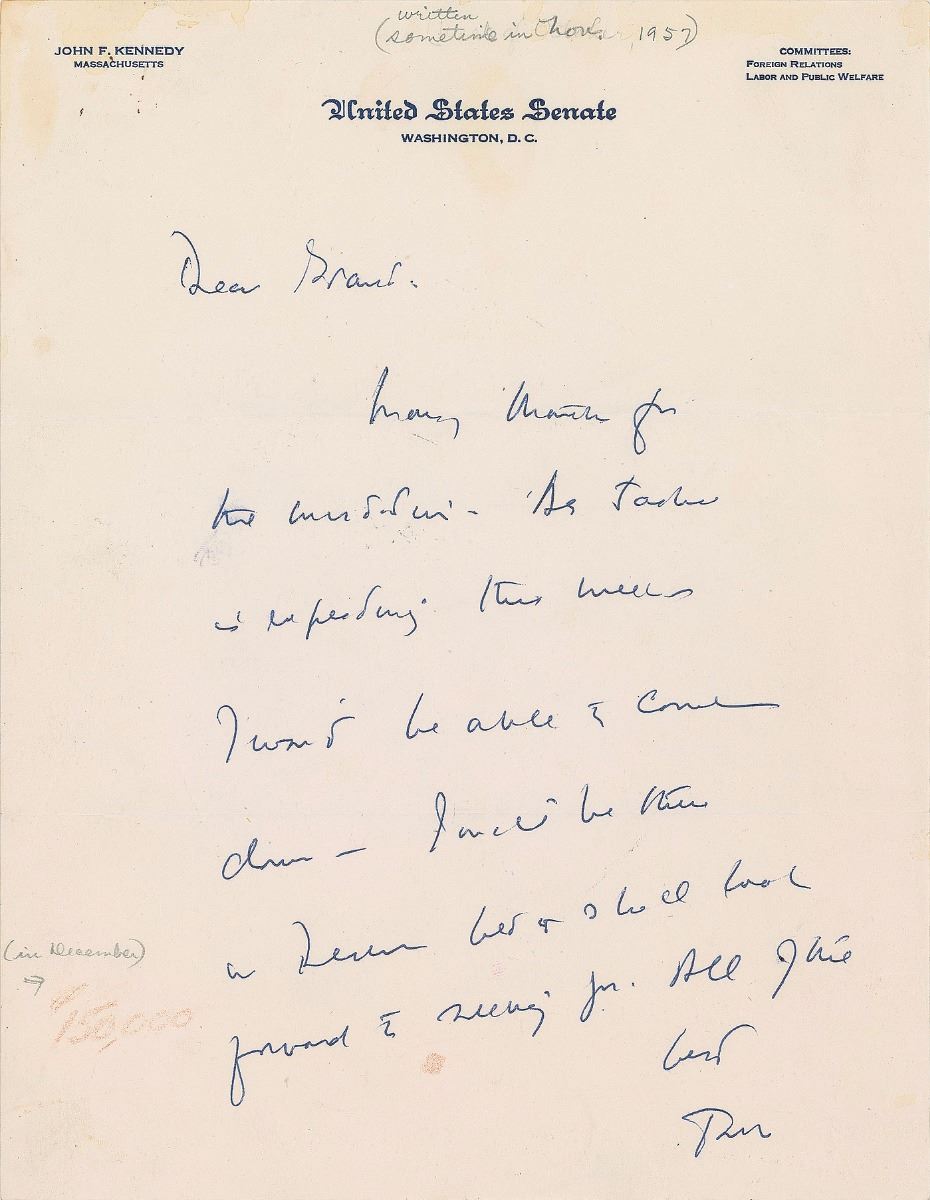 written
(sometime in Nov. 1957)
JOHN F. KENNEDY
MASSACHUSETTS
COMMITTEES:
FOREIGN RELATIONS
LABOR AND PUBLIC WELFARE
United States Senate
WASHINGTON, D. C.
Dear Grant.
Many thanks for
the invitation - As Jackie
is expecting this week
I won't be able to come
down - be there
in December & shall look
forward to seeing you. All of the
best
(in December)
150,000